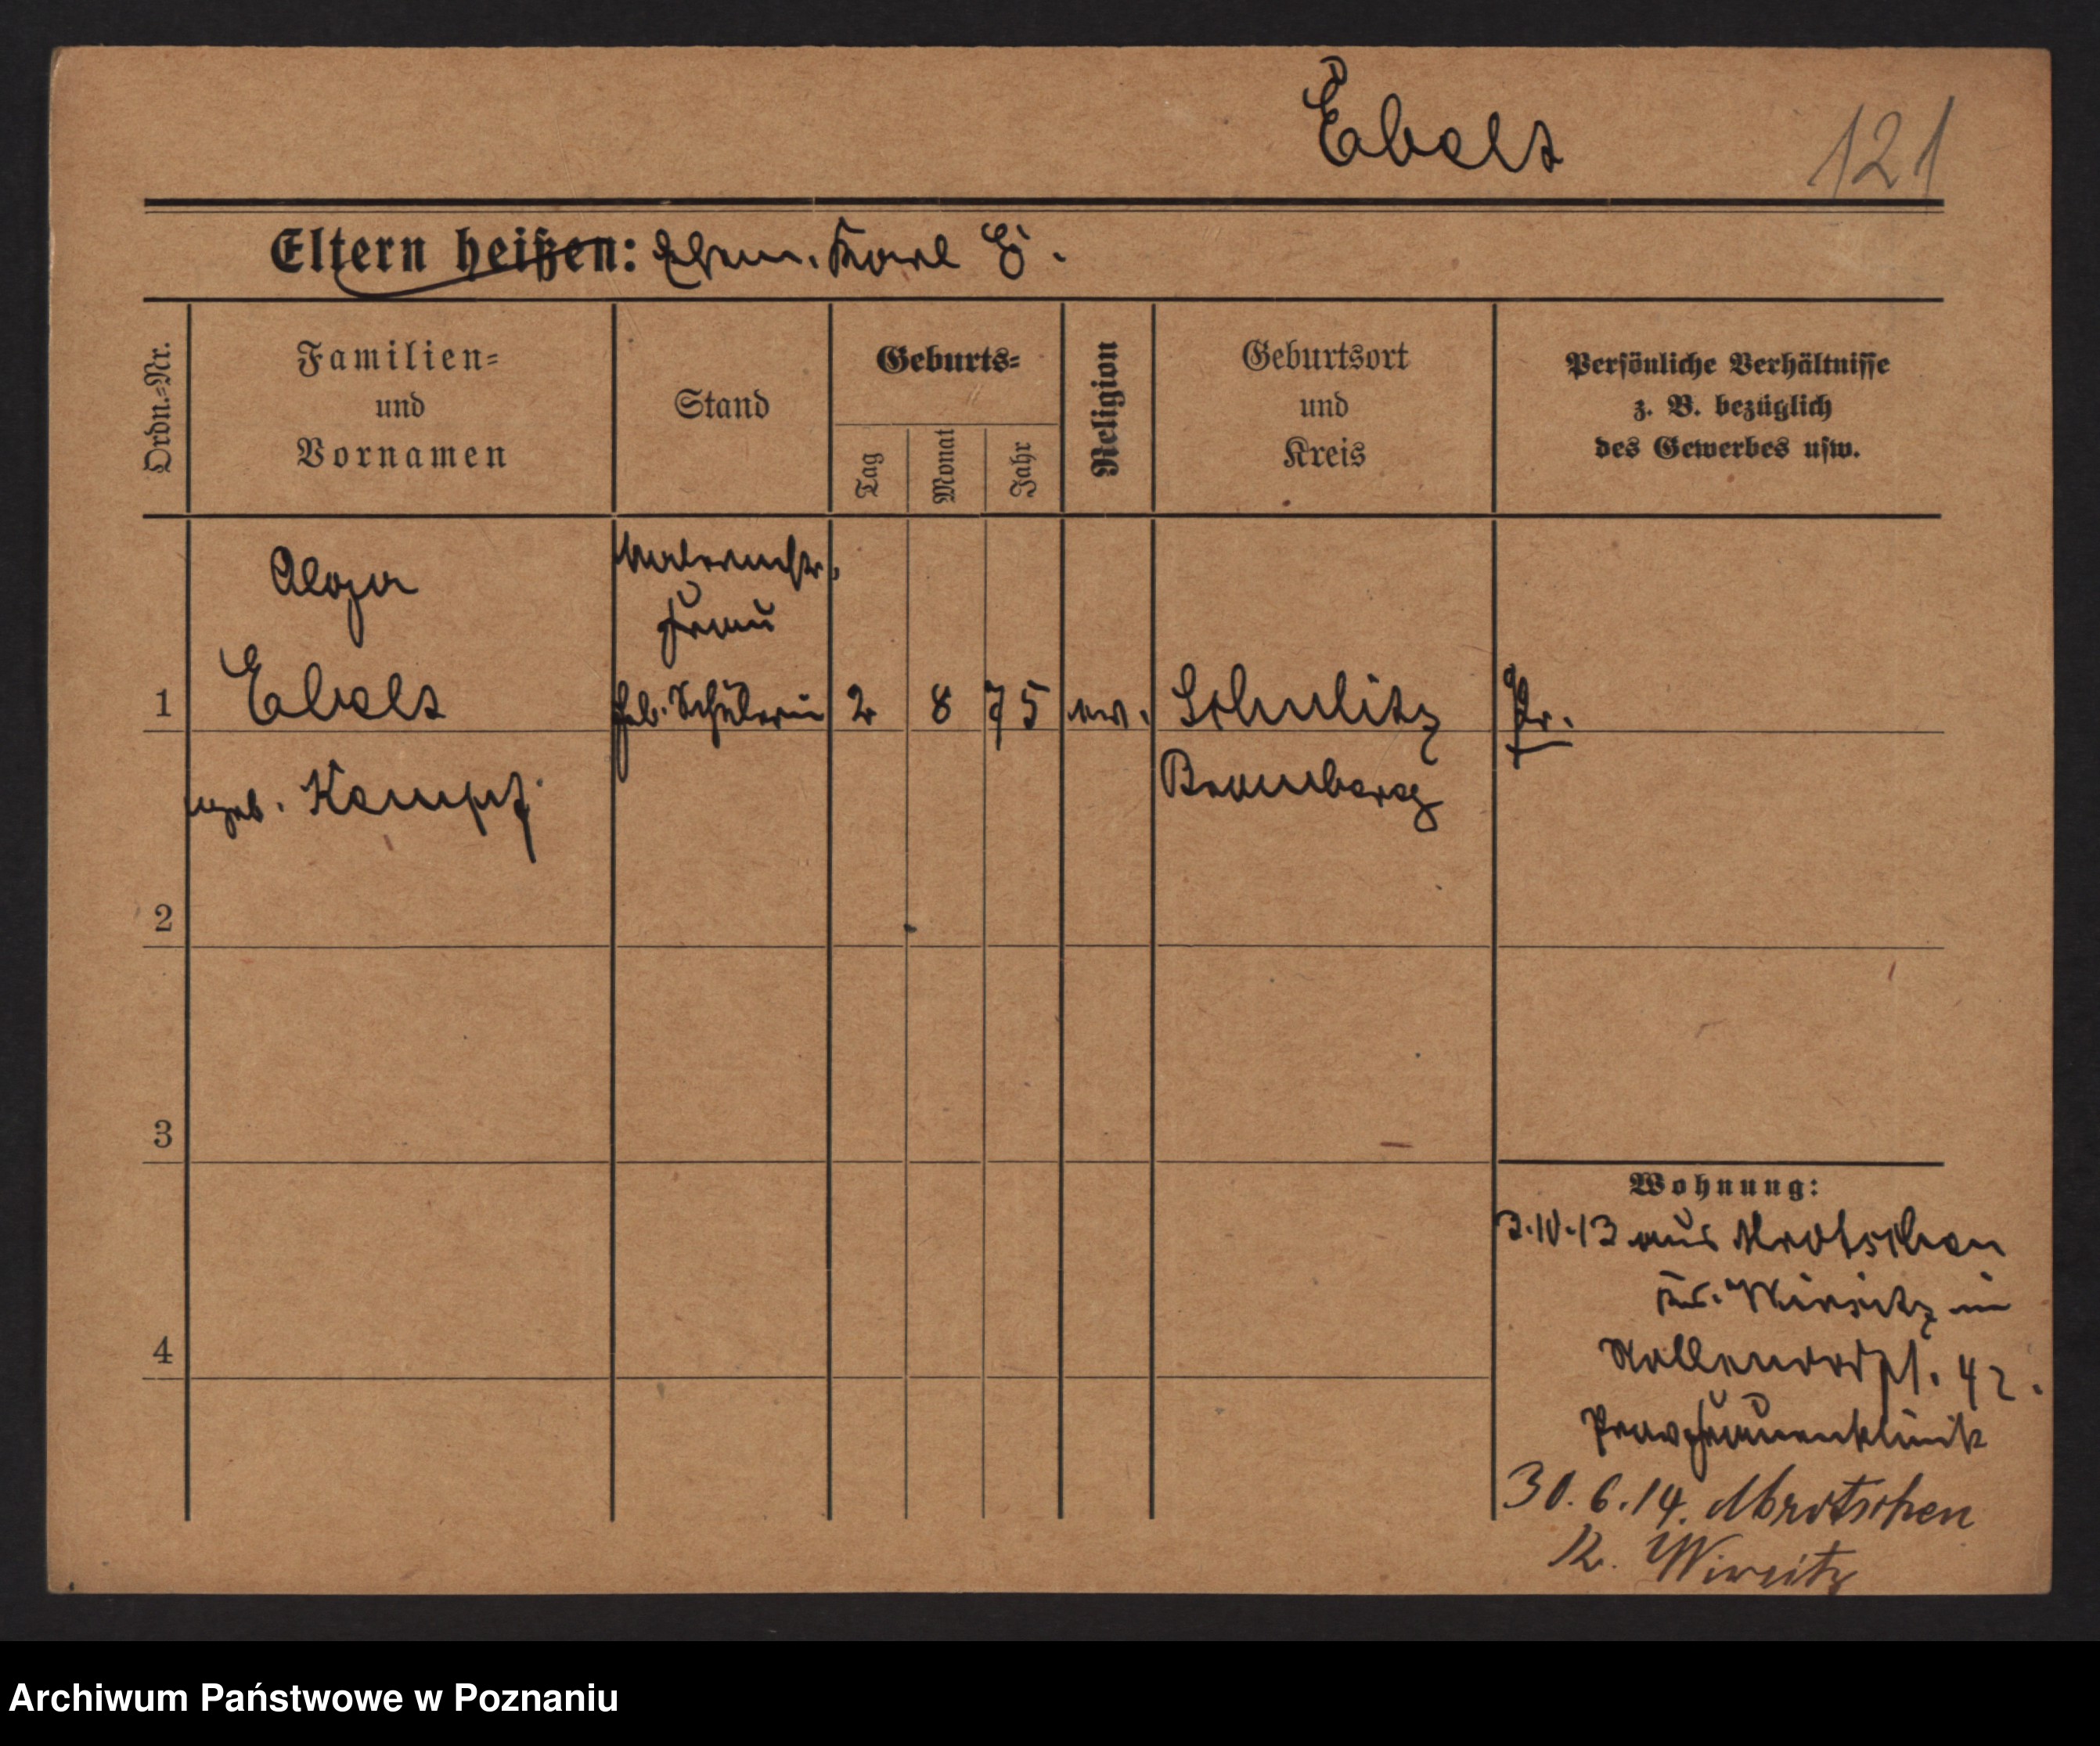 Ebelt
121
Eltern heißen: Ehem. Karl E.
Ordn.=Nr.
Familien=
und
Vornamen
Stand
Geburts=
Tag
Monat
Jahr
Religion
Geburtsort
und
Kreis
Persönliche Verhältnisse
z. B. bezüglich
des Gewerbes usw.
Malermstr.
Frau
1 Ebelt Heb. Schülerin 2 8 75 ev. Schulitz Pr.
geb. Kempf Bromberg
2
3
4
Wohnung:
3.IV.13 aus Mrotschen
Kr. Wirsitz in
42.
Provfrauenklinik
30. 6. 14. Mrotschen
K. Wirsitz
Archiwum Państwowe w Poznaniu